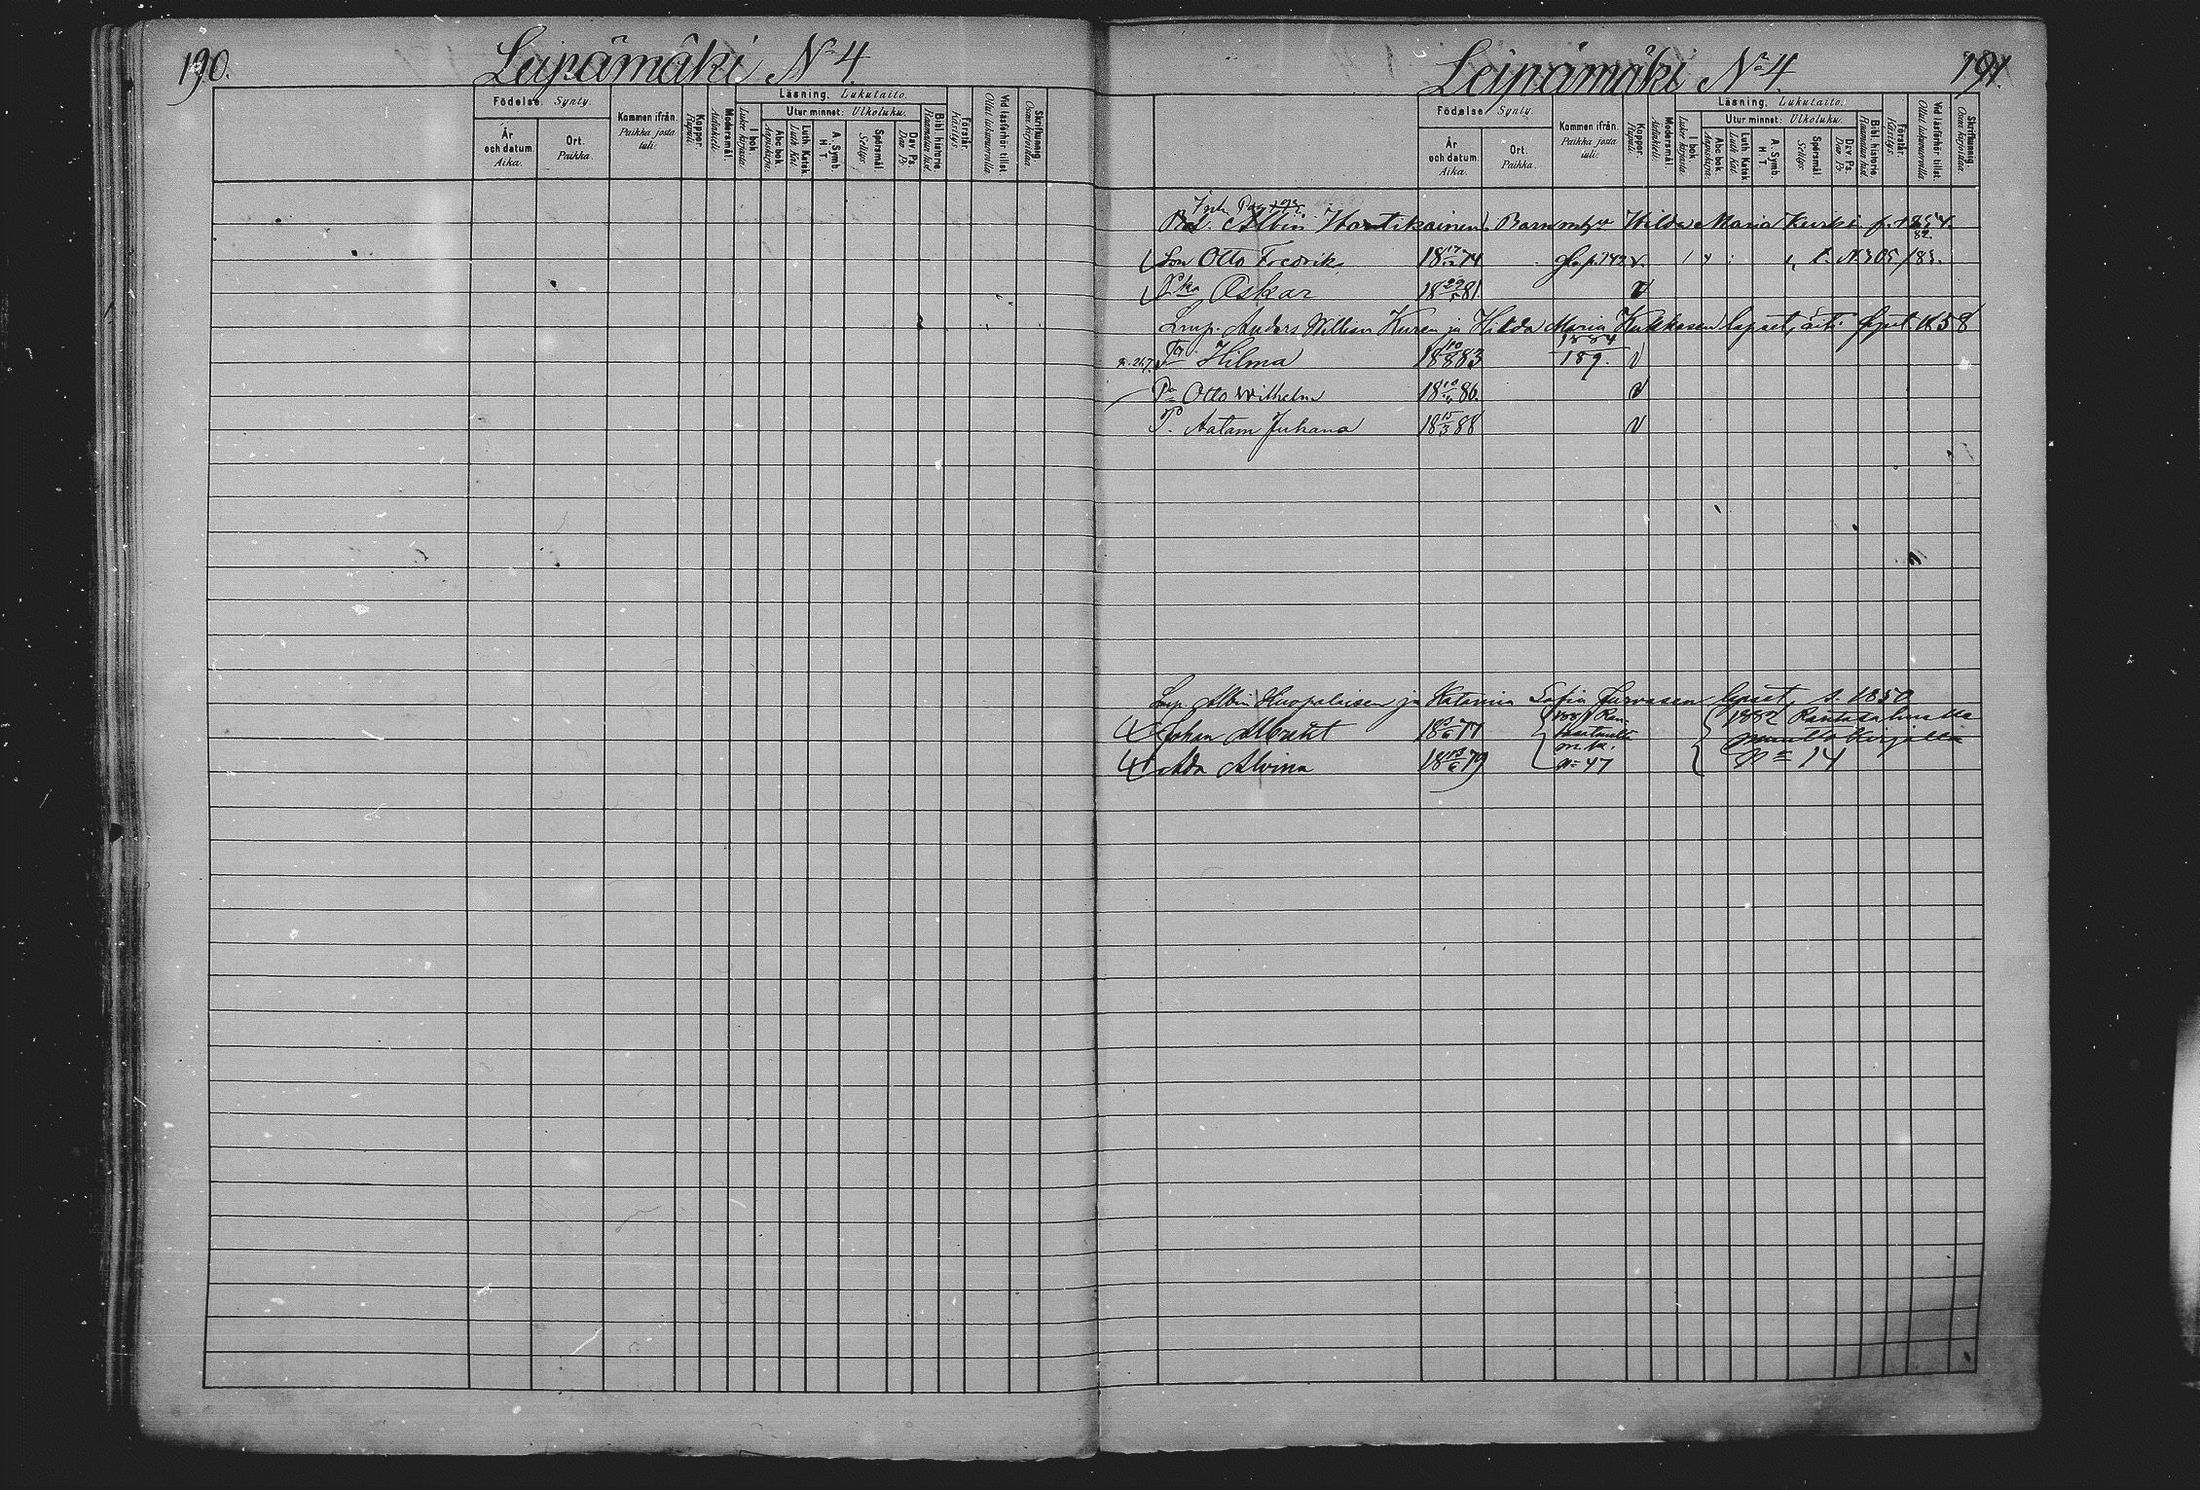 190.
Leipämäki N 4.
Födelse. Synty.
År och datum. Aika.
Ort. Paikka.
Kommen ifrån. Paikka josta tuli.
Koppor. Rupuli.
Modersmål. Äidinkieli.
Läsning. Lukutaito.
I bok. Luker kirjasta.
Utur minnet: Ulkoluku.
Abc bok. Aapiskirja.
Luth. Katek. Luth. Kat.
A. Symb. H. T.
Spörsmål. Selitys.
Dav. Ps. Daw. Ps.
Bibl. historie. Raamatun hist.
Förstår. Käsitys.
Vid läsförhör tillst. Ollut lukuvuorolla
Skrifkunnig. Osaa kirjoittaa.
Leipämäki No 4.
191.
Födelse. Synty.
År och datum. Aika.
Ort. Paikka.
Kommen ifrån. Paikka josta tuli.
Koppor. Rupuli.
Modersmål. Äidinkieli.
Läsning. Lukutaito.
I bok. Luker kirjasta.
Utur minnet: Ulkoluku.
Abc bok. Aapiskirja.
Luth. Katek. Luth. Kat.
A. Symb. H. T.
Spörsmål. Selitys.
Dav. Ps. Daw. Ps.
Bibl. historie. Raamatun hist.
Förstår. Käsitys.
Vid läsförhör tillst. Ollut lukuvuorolla
Skrifkunnig. Osaa kirjoittaa.
Albin Hartikainen Hilda Maria
Son Otto Fredrik 18 74 p. 742 v. N 305/83.
Oskar 18 29/5 81 v
Lmp. Anders Wilhem Kuren ja Hilda Maria Kukkosen lapset, äiti 1858
p. 267 Tr Hilma 18 10/8 83 1884 189. v
Pa Otto Wilhelm 18 86 v
P. Aatam Juhana 18 15/3 88 v
Lmp. Albin Huopalaisen ja Katarina Sofia lapset, s. 1850
Johan Albraht 18 77
Ada Alvina 18 79 N= 47 1882 Rantasalmella muuttokirjalla N= 14